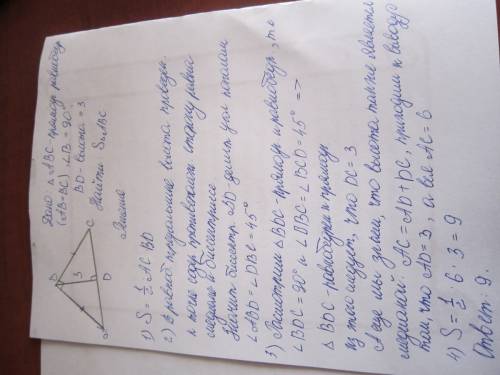 Дано: △ABC-прямоуг. равнобедр
(AB=BC) ∠B = 90°
BD - высота = 3
Найти S△ABC
Решение
B
3
h
C
D
1) S = 1/2 AC BD
2) В равноб. треугольнике высота проведен.
к
медиане и биссектрисе
Значит биссектр. BD - делит угол пополам
∠ABD = ∠DBC = 45°
3) Рассмотрим △BDC - прямоуг и равнобедр, т.к
∠BDC = 90° и ∠DBC = ∠BCD = 45° =>
△BDC - равнобедрен и прямоуг
из этого следует, что DC = 3
А еще мы знаем, что высота также является
медианой. AC = AD + DC, приходим к выводу
том, что AD = 3, а вся AC = 6
4) S = 1/2 · 6 · 3 = 9
Ответ: 9.